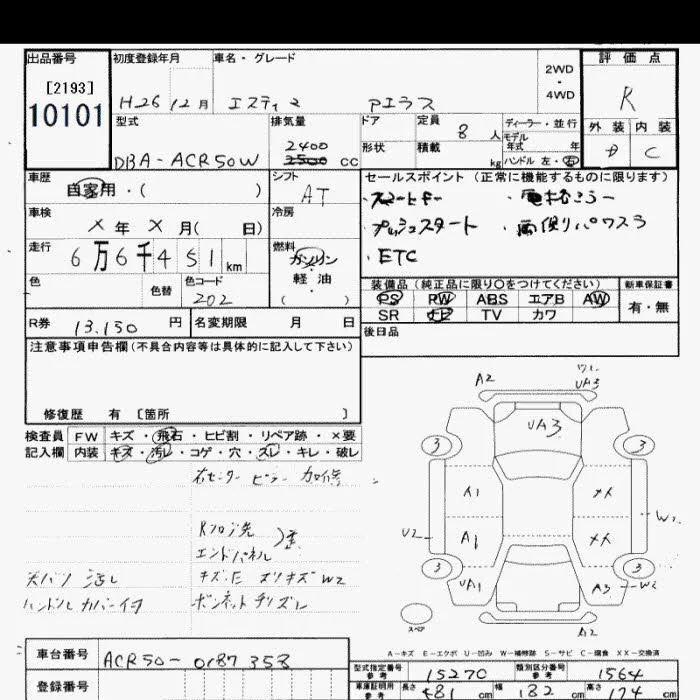 出品番号 初度登録年月 車名・グレード 2WD・4WD 評価点
[2193]
10101
H26 12月 エスティマ アエラス R
型式 排気量 ドア 定員 8人 ディーラー・並行 外装 内装
形状 積載 kg モデル年式 年
DBA-ACR50W 2400 cc ハンドル 左・右 D C
車歴 自家用・( ) シフト AT
セールスポイント(正常に機能するものに限ります)
・スマートキー
・プッシュスタート ・両側パワスラ
・ETC
車検 X年 X月( 日) 冷房
走行 6万6千451km 燃料 ガソリン・軽油 ( )
色 色替 色コード 202
装備品(純正品に限り〇をつけてください) 新車保証書
PS PW ABS エアB AW 有・無
SR ナビ TV カワ
R券 13,150円 名変期限 月 日 後日品
注意事項申告欄(不具合内容等は具体的に記入して下さい)
修復歴 有 [箇所 ]
検査員記入欄 FW キズ・飛石・ヒビ割・リペア跡・×要
内装 キズ・汚レ・コゲ・穴・スレ・キレ・破レ
右センターピラー 加修
エンドパネル
天バリ 汚レ
ハンドルカバー付
ボンネットチリズレ
A2 UA3
UA3
3 3
A1 XX
U2 A1 XX W2
3 3
UA1 A3 W2
スペア A2
A-キズ E-エクボ U-凹み W-補修跡 S-サビ C-腐食 XX-交換済
車台番号 ACR50-0187358
登録番号
型式指定番号 参考 15270 類別区分番号 参考 1564
車庫証明用 参考 長さ 481cm 幅 182cm 高さ 174cm